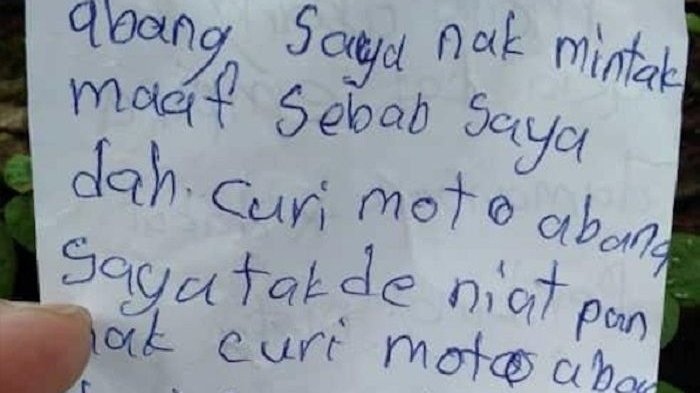 abang saya nak mintak
maaf sebab saya
dah. curi moto abang
saya takde niat pon
nak curi moto abang